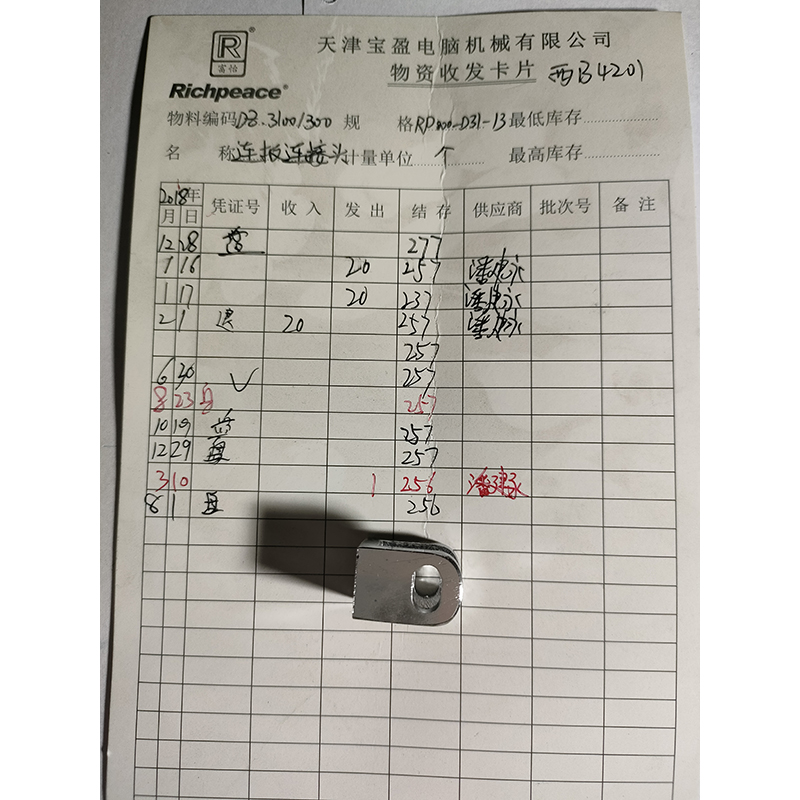 R
富怡
Richpeace®
天津宝盈电脑机械有限公司
物资收发卡片 西B4201
物料编码DZ.31001300 规 格RP800-D31-13最低库存
名 称连板连接头计量单位 个 最高库存
2018年 凭证号 收入 发出 结存 供应商 批次号 备注
月 日
12 28 277
1 16 20 257
1 17 20 237
2 1 20 257
257
6 30 257
8 23 257
10 19 257
12 29 盘 257
3 10 1 256
8 1 盘 256